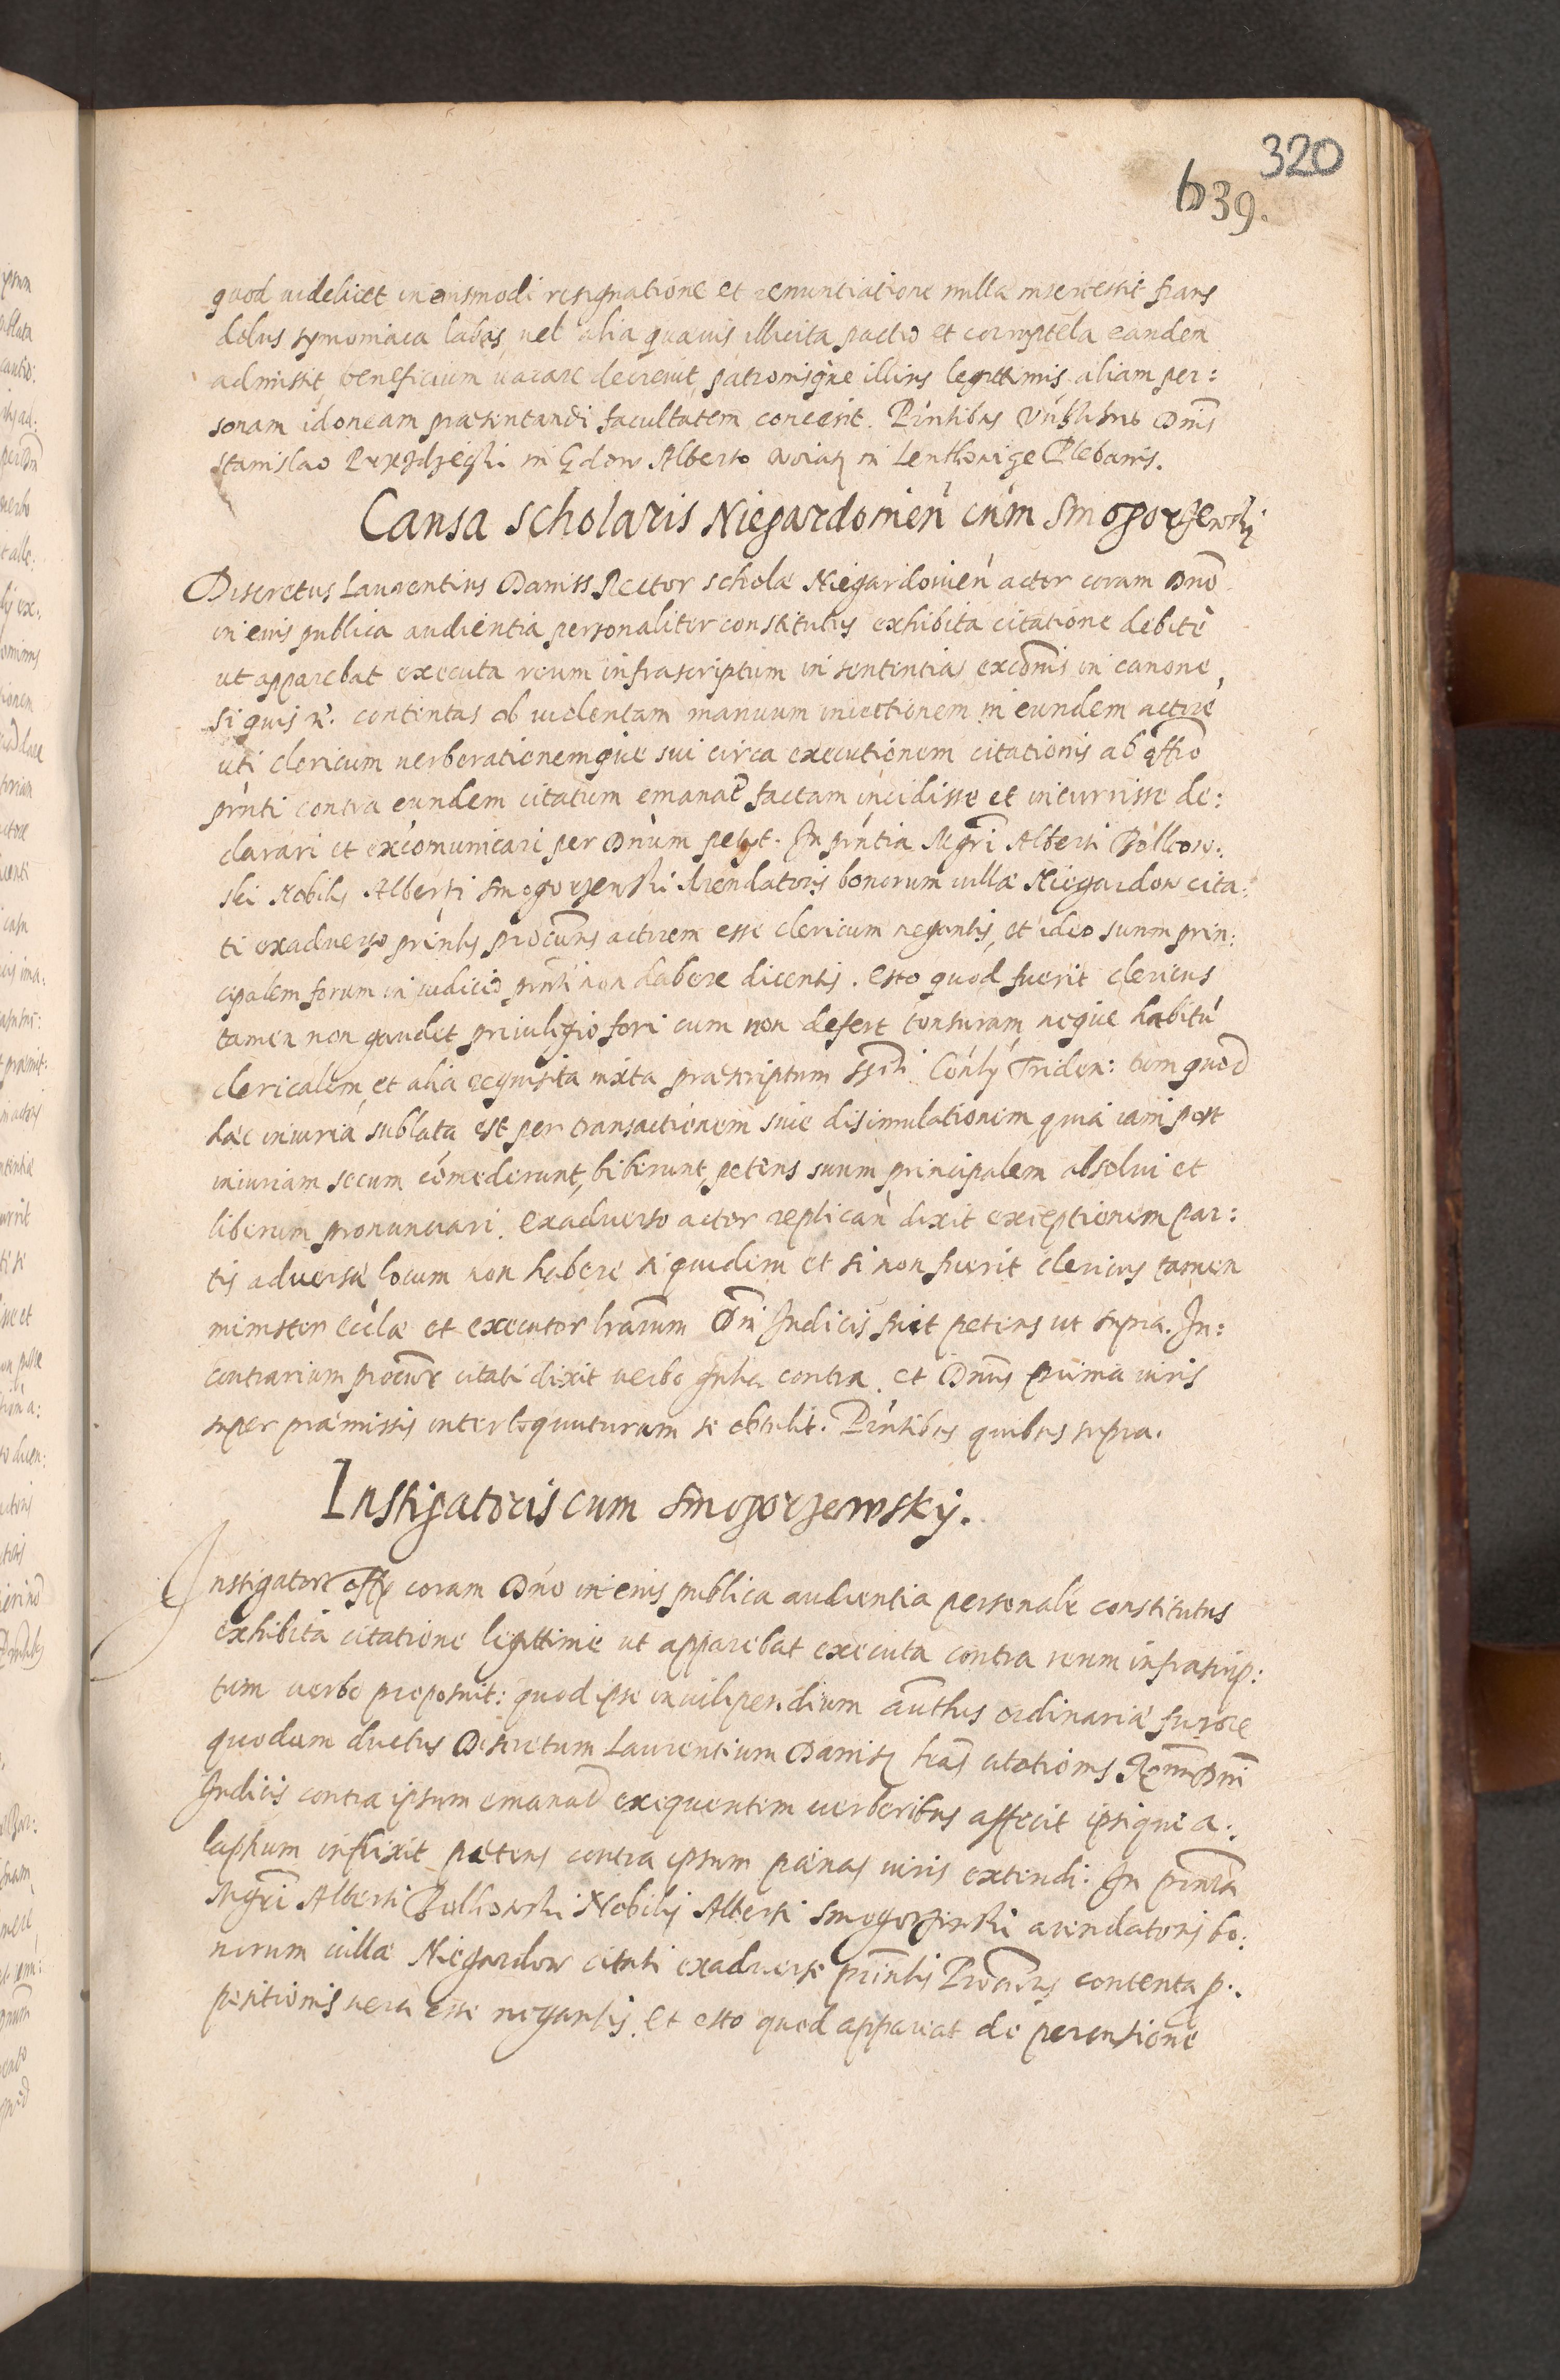 320
639.
quod uidelicet in eiusmodi resignatione et renuntiatione nulla intercessit fraus
dolus symoniaca labes, uel alia quæuis illicita pactio et corruptela eandem
admisit beneficium uacare decreuit, patronisque illius legittimis aliam per:
sonam idoneam præsentandi facultatem concessit. Pñtibus Vñblibus Dnis
Stanislao in Gdow Alberto in Plebanis.
Causa scholaris Niegardouien cum Smogorzewskÿ
Discretus Laurentius Daniss Rector scholæ Niegardouien actor coram Dno
in eius publica audientia personaliter constitutus exhibita citatione debite
ut apparebat executa reum infrascriptum in sententias excõmis in canone,
si quis &. contentas ob uiolentam manuum iniectionem in eundem actore
uti clericum uerberationemque sui circa executionem citationis ab offio
pñti contra eundem citatum emanat factam incidisse et incurrisse de:
clarari et excomunicari per Dnum petijt. In pñtia Mgri Alberti Bolkow:
ski Nobilis Alberti Smogorzewski Arendatoris bonorum uillæ Niegardow cita:
ti exaduerso pñntis procuris actorem esse clericum negantis, et ideo suum prin:
cipalem forum in iudicio pñti non habere dicentis. Esto quod fuerit clericus
tamen non gaudet priuilegio fori cum non defert tonsuram neque habitu
clericalem, et alia requisita iuxta præscriptum Ssti Conlÿ Triden: tum quod
hæc iniuria sublata est per transactionem siue disimulationem, quia iam post
iniuriam secum comederunt, biberunt, petens suum principalem absolui et
liberum pronunciari. Exaduerso actor replican dixit exceptionem par:
tis aduersæ locum non habere siquidem et si non fuerit clericus tamen
minister eccłæ et executor lrarum Dni Iudicis fuit petens ut supra. In:
contrarium procur citati dixit uerbo contra. et Dnus prima iuris
super præmissis interloquuturum se obtulit. Pñtibus quibus supra.
Instigatoris cum Smogorzewskÿ.
Instigator offÿ coram Dno in eius publica audientia personalr constitutus
exhibita citatione legittime ut apparebat executa contra reum infrascrip:
tum uerbo proposuit: quod ipse in uilipendium authtis ordinariæ furore
quodam ductus Discretum Laurentium Daniss lras citationis Dni
Iudicis contra ipsum emanat exequentem uerberibus affecit ipsique a:
laphum inflixit petens contra ipsum pœnas iuris extendi. In pñtia
Mgri Alberti Bolkowski Nobilis Alberti Smogorzewski arendatoris bo:
norum uillæ Niegardow citati exaduerso pñntis Procuris contenta p:
positionis uera esse negantis. Et esto quod appareat de percussione